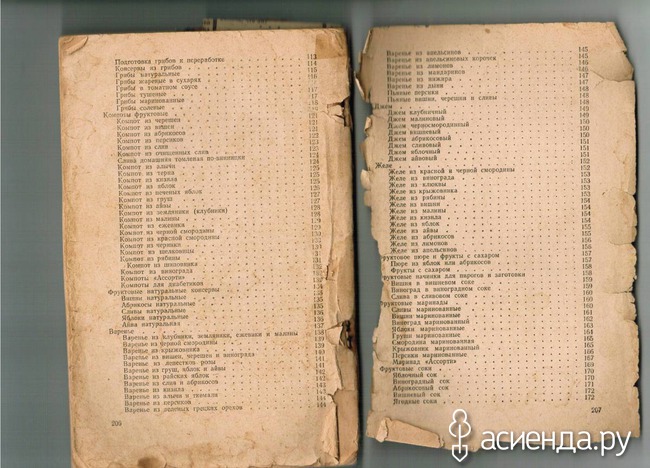 Подготовка грибов к переработке 113
Консервы из грибов 114
Грибы натуральные 115
Грибы жареные в сухарях 116
Грибы в томатном соусе
Грибы тушеные 117
Грибы маринованные 117
Грибы соленые
Компоты фруктовые 121
Компот из черешен 121
Компот из вишен 121
Компот из абрикосов 122
Компот из персиков 122
Компот из слив 123
Компот из очищенных слив 123
Слива домашняя томленая по-винницки 124
Компот из алычи 124
Компот из терна 125
Компот из кизила 125
Компот из яблок 126
Компот из печеных яблок 127
Компот из груш 127
Компот из айвы 128
Компот из земляники (клубники) 128
Компот из малины 129
Компот из ежевики
Компот из черной смородины 130
Компот из красной смородины
Компот из черники
Компот из шелковицы
Компот из рябины 131
Компот из шиповника
Компот из винограда
Компоты «Ассорти»
Компоты для диабетиков
Фруктовые натуральные консервы
Вишни натуральные
Абрикосы натуральные 135
Сливы натуральные
Яблоки натуральные 136
Айва натуральная 137
Варенье
Варенье из клубники, земляники, ежевики и малины
Варенье из черной смородины 139
Варенье из крыжовника
Варенье из вишен, черешен и винограда 140
Варенье из лепестков розы 141
Варенье из груш, яблок и айвы 141
Варенье из райских яблок 142
Варенье из слив и абрикосов
Варенье из кизила
Варенье из алычи и ткемали
Варенье из персиков
Варенье из зеленых грецких орехов 144
206
Варенье из апельсинов 145
Варенье из апельсиновых корочек 145
Варенье из лимонов 146
Варенье из мандаринов
Варенье из инжира 147
Варенье из дыни
Пьяные персики 148
Пьяные вишни, черешни и сливы 148
Джем 149
Джем клубничный 149
Джем малиновый 149
Джем черносмородинный 150
Джем вишневый 150
Джем абрикосовый 150
Джем сливовый 151
Джем яблочный 151
Джем айвовый 151
Желе 152
Желе из красной и черной смородины 152
Желе из винограда 153
Желе из клюквы 153
Желе из крыжовника 153
Желе из рябины 153
Желе из вишни 154
Желе из малины 154
Желе из кизила 154
Желе из яблок 154
Желе из айвы 155
Желе из абрикосов 155
Желе из лимонов 156
Желе из апельсинов 156
Фруктовое пюре и фрукты с сахаром 157
Пюре из яблок или абрикосов 157
Фрукты с сахаром 158
Фруктовые начинки для пирогов и заготовки 158
Вишня в вишневом соке 159
Виноград в виноградном соке 159
Слива в сливовом соке 159
Фруктовые маринады 160
Сливы маринованные 161
Вишни маринованные
Виноград маринованный 163
Яблоки маринованные 163
Груши маринованные 164
Смородина маринованная 165
Крыжовник маринованный 165
Персики маринованные 166
Маринад «Ассорти» 167
Фруктовые соки 169
Яблочный сок 170
Виноградный сок 171
Абрикосовый сок 171
Вишневый сок 172
Ягодные соки 172
207
асиенда.ру